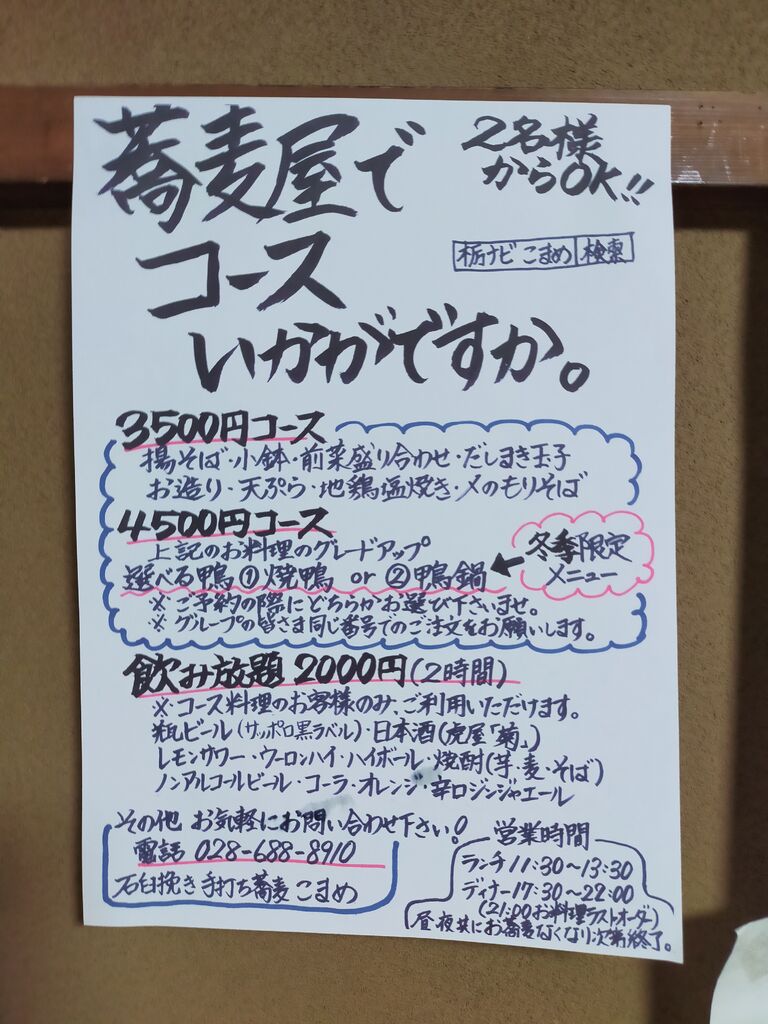 蕎麦屋で
コース
いかがですか。
2名様
からOK!!
栃ナビ こまめ 検索
3500円コース
揚そば・小鉢・前菜盛り合わせ・だしまき玉子
お造り・天ぷら・地鶏塩焼き・〆のもりそば
4500円コース
上記のお料理のグレードアップ
選べる鴨 ①焼鴨 or ②鴨鍋
冬季限定
メニュー
※ご予約の際にどちらかお選び下さいませ。
※グループの皆さま同じ番号でのご注文をお願いします。
飲み放題 2000円(2時間)
※コース料理のお客様のみ、ご利用いただけます。
瓶ビール(サッポロ黒ラベル)・日本酒(虎屋「菊」)
レモンサワー・ウーロンハイ・ハイボール・焼酎(芋・麦・そば)
ノンアルコールビール・コーラ・オレンジ・辛口ジンジャエール
その他 お気軽にお問い合わせ下さい!
電話 028-688-8910
石臼挽き手打ち蕎麦 こまめ
営業時間
ランチ11:30～13:30
ディナー17:30～22:00
(21:00お料理ラストオーダー)
昼夜共にお蕎麦なくなり次第終了。